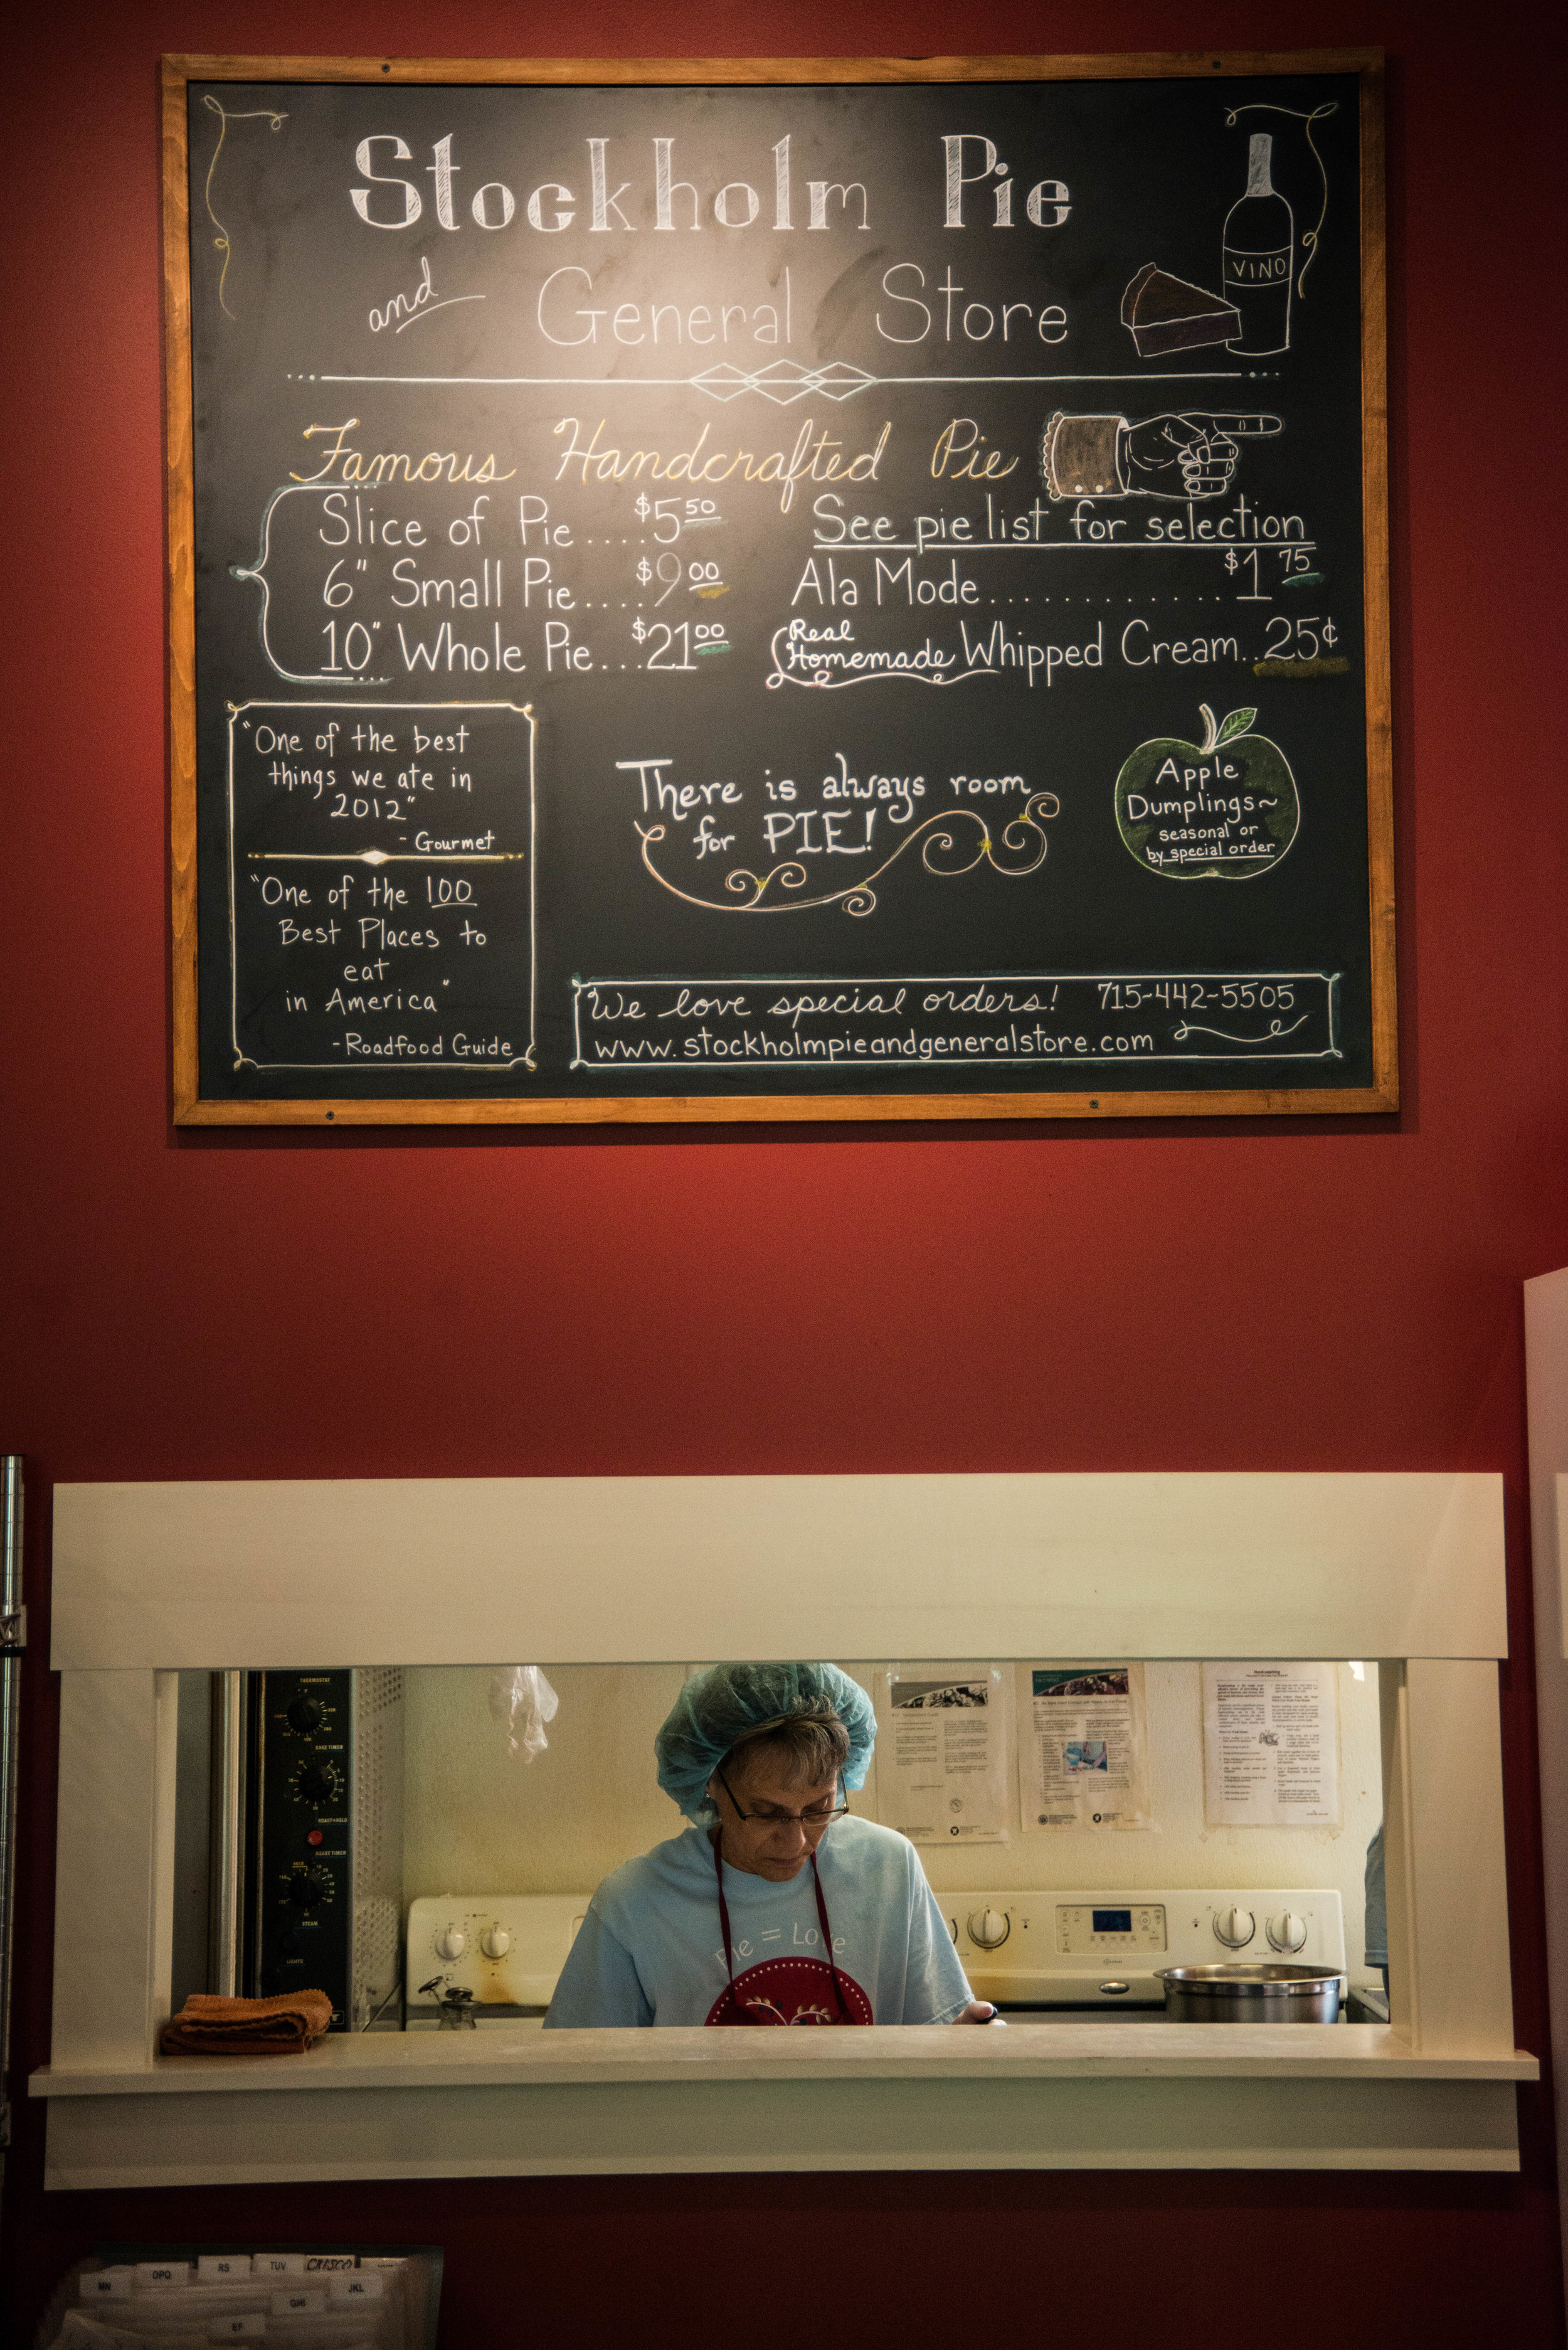 Stockholm Pie
and General Store
VINO
Famous Handcrafted Pie
Slice of Pie....$5 50
6" Small Pie....$9 00
10" Whole Pie...$21 00
See pie list for selection
Ala Mode............$1 75
Real
Homemade Whipped Cream..25¢
"One of the best
things we ate in
2012"
- Gourmet
"One of the 100
Best Places to
eat
in America"
-Roadfood Guide
There is always room
for PIE!
Apple
Dumplings~
seasonal or
by special order
We love special orders! 715-442-5505
www.stockholmpieandgeneralstore.com
THERMOSTAT
STEAM
LIGHTS
Pie = Love
MN
OPQ
RS
TUV
CRISCO
JKL
GHI
EF